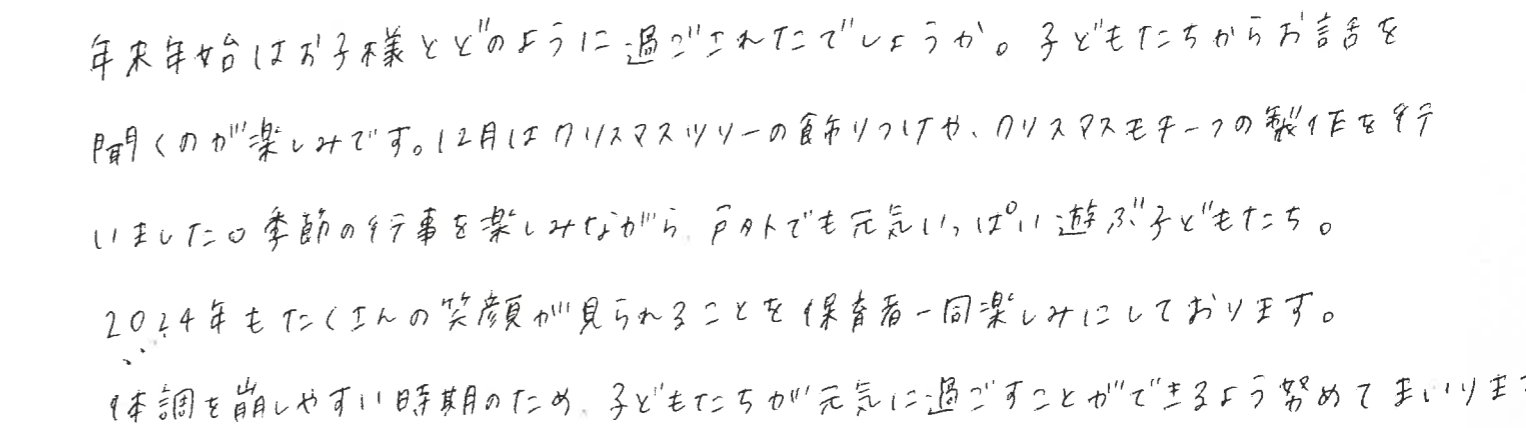 年末年始はお子様とどのように過ごされたでしょうか。子どもたちからお話を
聞くのが楽しみです。12月はクリスマスツリーの飾りつけや、クリスマスモチーフの製作を行
いました。季節の行事を楽しみながら、戸外でも元気いっぱい遊ぶ子どもたち。
2024年もたくさんの笑顔が見られることを保育者一同楽しみにしております。
体調を崩しやすい時期のため、子どもたちが元気に過ごすことができるよう努めてまいります